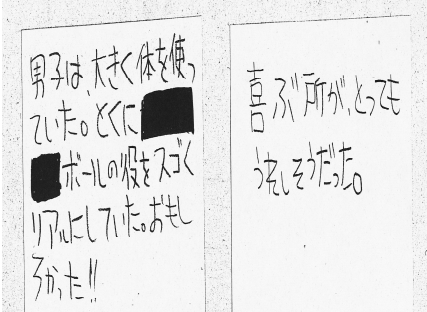 男子は、大きく体を使っ
ていた。とくに
ボールの役をスゴく
リアルにしていた。おもし
ろかった!!
喜ぶ所が、とっても
うれしそうだった。